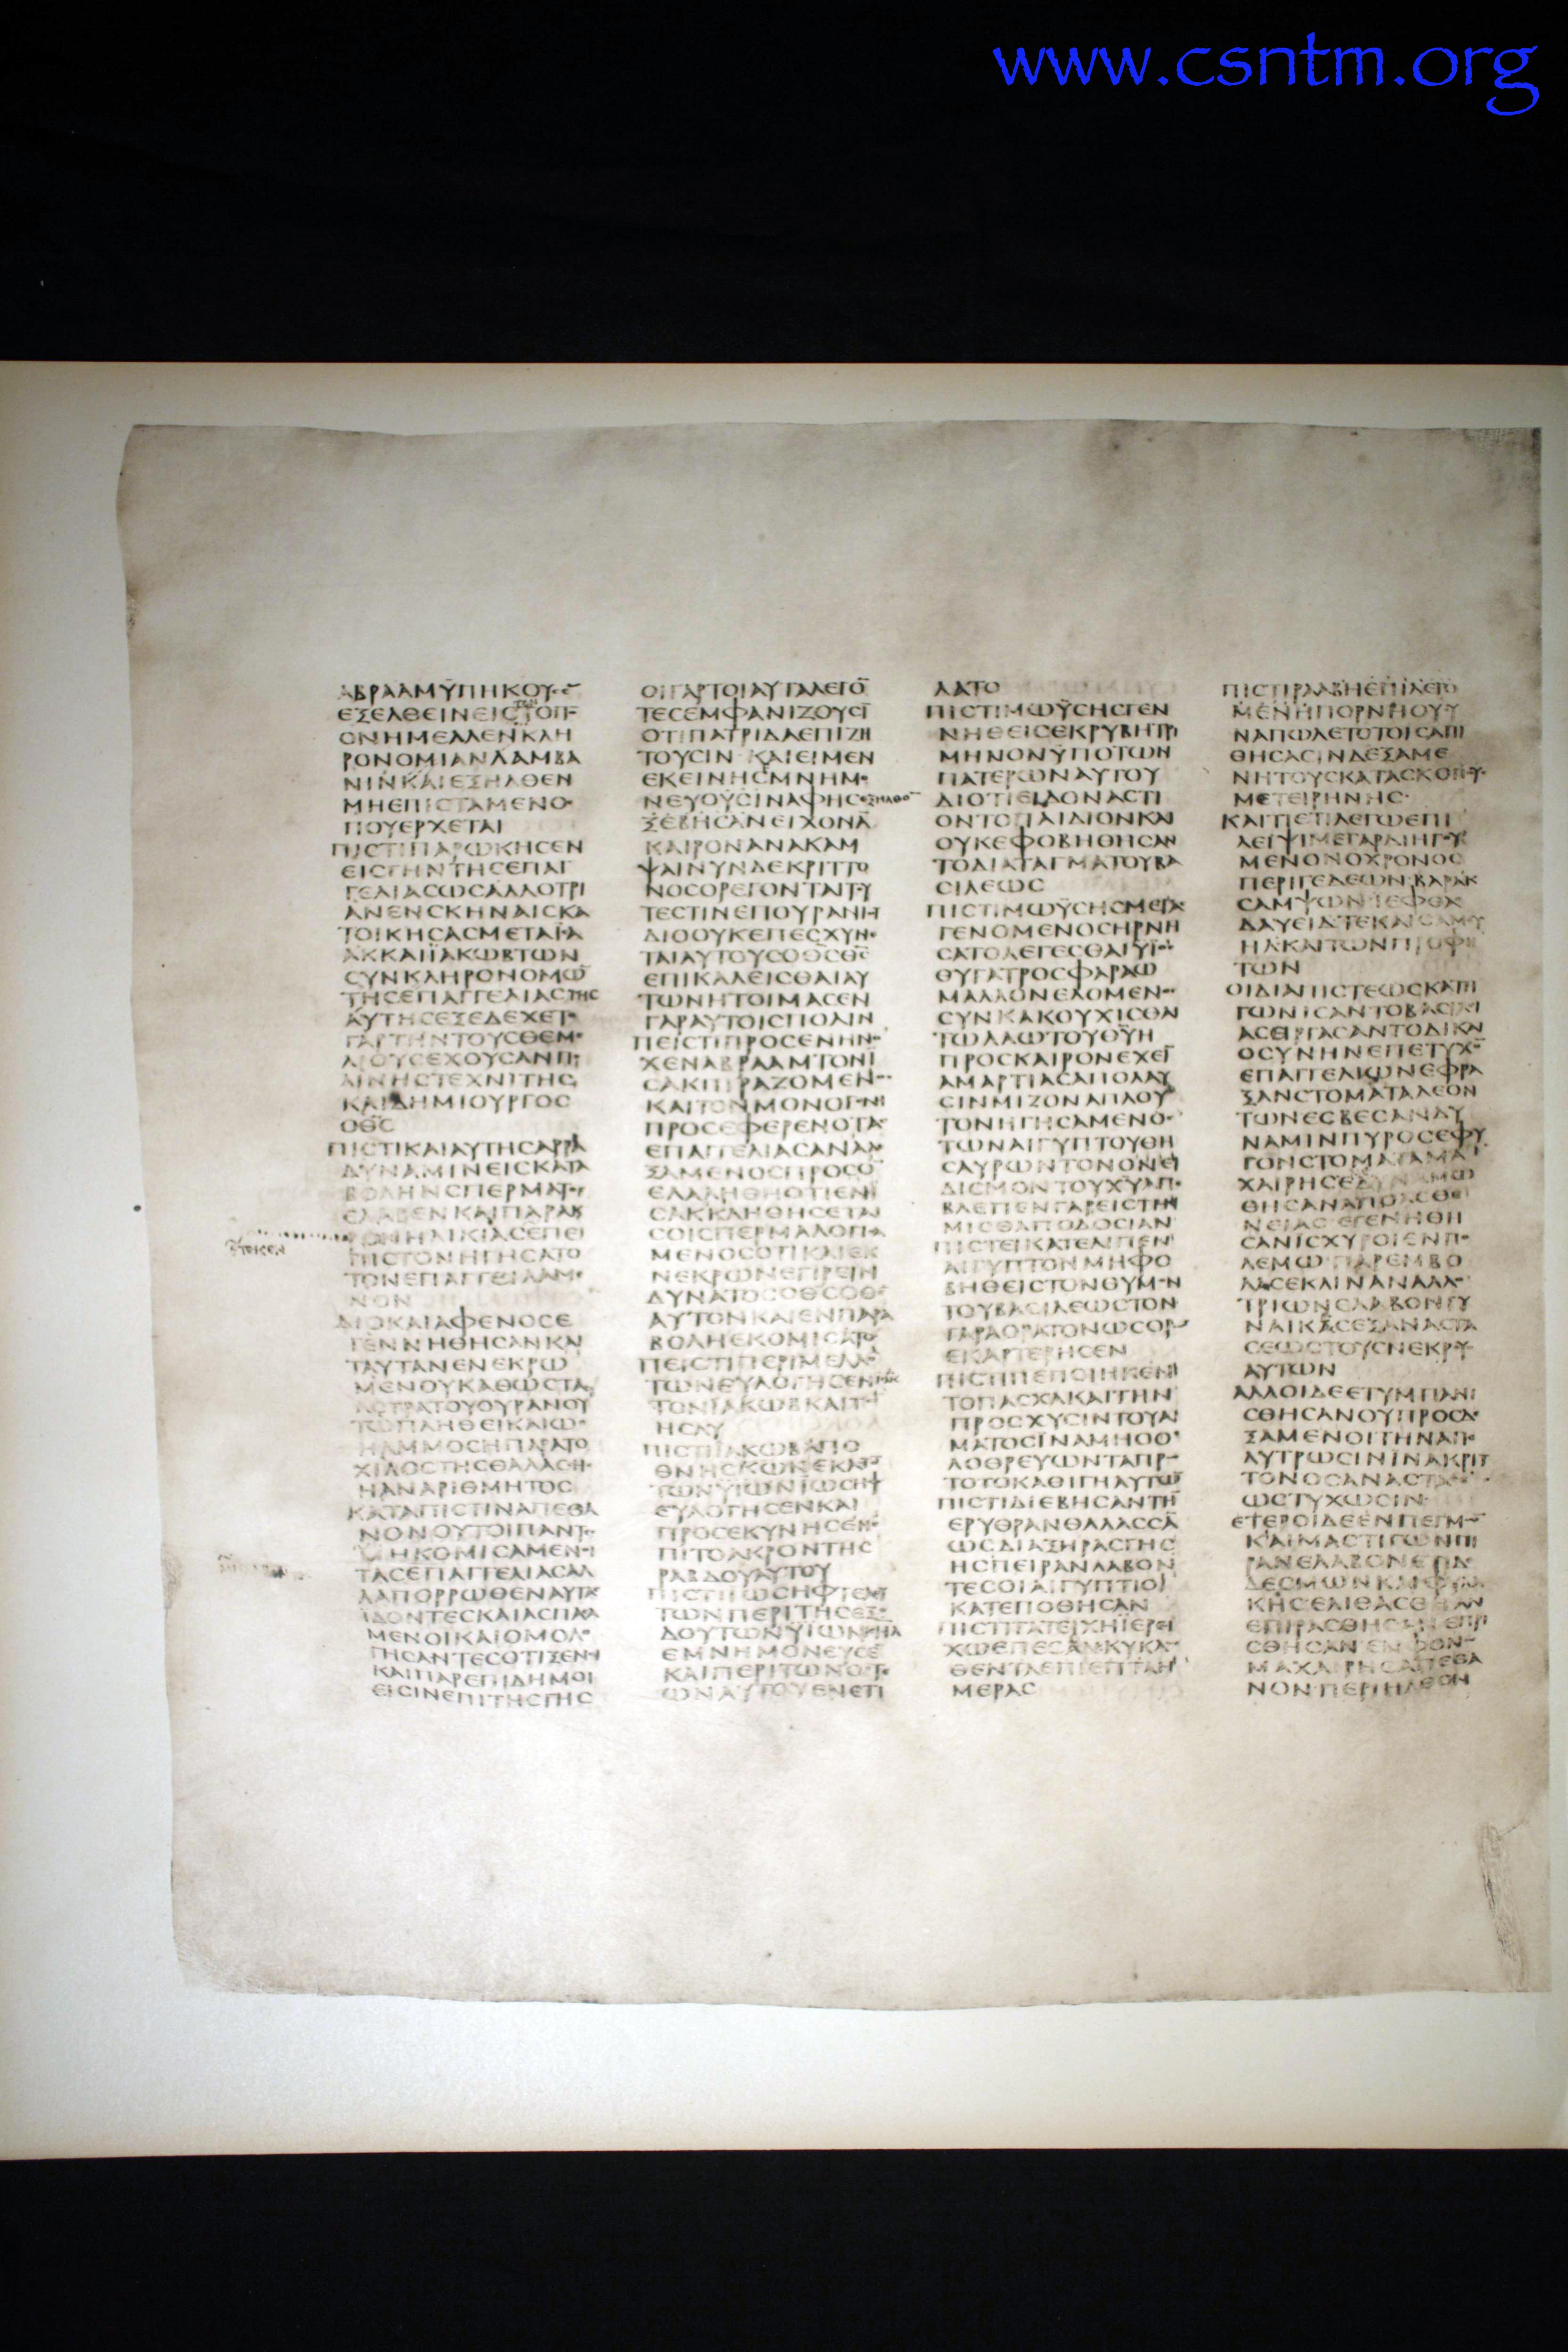 www.csntm.org
ΑΒΡΑΑΜΫΠΗΚΟΥ
ΕΞΕΛΘΕΙΝΕΙΣ
ΟΝΗΜΕΛΛΕΝΚΛΗ
ΡΟΝΟΜΙΑΝΛΑΜΒΑ
ΝΙΝΚΑΙΕΞΗΛΘΕΝ
ΜΗΕΠΙϹΤΑΜΕΝΟ
ΠΟΥΕΡΧΕΤΑΙ
ΠΙϹΤΙΠΑΡΩΚΗϹΕΝ
ΕΙϹΓΗΝΤΗϹΕΠΑΓ
ΓΕΛΙΑϹΩϹΑΛΛΟΤΡΙ
ΑΝΕΝϹΚΗΝΑΙϹΚΑ
ΤΟΙΚΗϹΑϹΜΕΤΑΪϹΑ
ΑΚΚΑΙΪΑΚΩΒΤΩΝ
ϹΥΝΚΛΗΡΟΝΟΜΩ̅
ΤΗϹΕΠΑΓΓΕΛΙΑϹΤΗϹ
ΑΥΤΗϹΕΞΕΔΕΧΕΤ
ΓΑΡΤΗΝΤΟΥϹΘΕΜ
ΛΙΟΥϹΕΧΟΥϹΑΝΠ
ΛΙΝΗϹΤΕΧΝΙΤΗϹ
ΚΑΙΔΗΜΙΟΥΡΓΟϹ
ΟΘ̅Ϲ̅
ΠΙϹΤΙΚΑΙΑΥΤΗϹΑΡΡΑ
ΔΥΝΑΜΙΝΕΙϹΚΑΤΑ
ΒΟΛΗΝϹΠΕΡΜΑΤ
ΕΛΑΒΕΝΚΑΙΠΑΡΑΚ
ΡΟΝΗΛΙΚΙΑϹΕΠΕΙ
ΕΤΕΚΕΝ
ΠΙϹΤΟΝΗΓΗϹΑΤΟ
ΤΟΝΕΠΑΓΓΕΙΛΑΜ
ΝΟΝ
ΔΙΟΚΑΙΑΦΕΝΟϹΕ
ΓΕΝΝΗΘΗϹΑΝΚΑΙ
ΤΑΥΤΑΝΕΝΕΚΡΩ
ΜΕΝΟΥΚΑΘΩϹΤΑ
ΑϹΤΡΑΤΟΥΟΥΡΑΝΟΥ
ΤΩΠΛΗΘΕΙΚΑΙΩ
ΗΑΜΜΟϹΗΠΑΡΑΤΟ
ΧΙΛΟϹΤΗϹΘΑΛΑϹϹΗ
ΗΑΝΑΡΙΘΜΗΤΟϹ
ΚΑΤΑΠΙϹΤΙΝΑΠΕΘΑ
ΝΟΝΟΥΤΟΙΠΑΝΤ
ΜΗΚΟΜΙϹΑΜΕΝΟΙ
ΤΑϹΕΠΑΓΓΕΛΙΑϹΑΛ
ΛΑΠΟΡΡΩΘΕΝΑΥΤΑ
ΙΔΟΝΤΕϹΚΑΙΑϹΠΑϹΑ
ΜΕΝΟΙΚΑΙΟΜΟΛΟ
ΓΗϹΑΝΤΕϹΟΤΙΞΕΝΟΙ
ΚΑΙΠΑΡΕΠΙΔΗΜΟΙ
ΕΙϹΙΝΕΠΙΤΗϹΓΗϹ
ΟΙΓΑΡΤΟΙΑΥΤΑΛΕΓΟ̅
ΤΕϹΕΜΦΑΝΙΖΟΥϹΙ̅
ΟΤΙΠΑΤΡΙΔΑΕΠΙΖΗ
ΤΟΥϹΙΝΚΑΙΕΙΜΕΝ
ΕΚΕΙΝΗϹΜΝΗΜΟ
ΝΕΥΟΥϹΙΝΑΦΗϹ
ΞΕΒΗϹΑΝΕΙΧΟΝΑ̅
ΚΑΙΡΟΝΑΝΑΚΑΜ
ΨΑΙΝΥΝΔΕΚΡΙΤΤΟ
ΝΟϹΟΡΕΓΟΝΤΑΙΤΟΥ
ΤΕϹΤΙΝΕΠΟΥΡΑΝΙΟΥ
ΔΙΟΟΥΚΕΠΕϹΧΥΝΕ
ΤΑΙΑΥΤΟΥϹΟΘ̅Ϲ̅Θ̅Ϲ̅
ΕΠΙΚΑΛΕΙϹΘΑΙΑΥ
ΤΩΝΗΤΟΙΜΑϹΕΝ
ΓΑΡΑΥΤΟΙϹΠΟΛΙΝ
ΠΕΙϹΤΙΠΡΟϹΕΝΗΝΟ
ΧΕΝΑΒΡΑΑΜΤΟΝΪ
ϹΑΚΠΙΡΑΖΟΜΕΝΟϹ
ΚΑΙΤΟΝΜΟΝΟΓΕΝΗ
ΠΡΟϹΕΦΕΡΕΝΟΤΑϹ
ΕΠΑΓΓΕΛΙΑϹΑΝΑΔΕ
ΞΑΜΕΝΟϹΠΡΟϹΟ̅
ΕΛΑΛΗΘΗΟΤΙΕΝΪ
ϹΑΚΚΛΗΘΗϹΕΤΑΙ
ϹΟΙϹΠΕΡΜΑΛΟΓΙϹΑ
ΜΕΝΟϹΟΤΙΚΑΙΕΚ
ΝΕΚΡΩΝΕΓΙΡΕΙΝ
ΔΥΝΑΤΟϹΟΘ̅Ϲ̅ΟΘΕ
ΑΥΤΟΝΚΑΙΕΝΠΑΡΑ
ΒΟΛΗΕΚΟΜΙϹΑΤΟ
ΠΕΙϹΤΙΠΕΡΙΜΕΛΛΟ
ΤΩΝΕΥΛΟΓΗϹΕΝΪϹΑΑΚ
ΤΟΝΪΑΚΩΒΚΑΙΤΟΝ
ΗϹΑΥ
ΠΙϹΤΙΪΑΚΩΒΑΠΟ
ΘΝΗϹΚΩΝΕΚΑϹΤΟ
ΤΩΝΫΙΩΝΪΩϹΗΦ
ΕΥΛΟΓΗϹΕΝΚΑΙ
ΠΡΟϹΕΚΥΝΗϹΕΝΕ
ΠΙΤΟΑΚΡΟΝΤΗϹ
ΡΑΒΔΟΥΑΥΤΟΥ
ΠΙϹΤΙΪΩϹΗΦΤΕΛΕΥ
ΤΩΝΠΕΡΙΤΗϹΕΞΟ
ΔΟΥΤΩΝΫΙΩΝΙΗΛ
ΕΜΝΗΜΟΝΕΥϹΕ̅
ΚΑΙΠΕΡΙΤΩΝΟϹΤΕ
ΩΝΑΥΤΟΥΕΝΕΤΙ
ΛΑΤΟ
ΠΙϹΤΙΜΩΫϹΗϹΓΕΝ
ΝΗΘΕΙϹΕΚΡΥΒΗΤΡΙ
ΜΗΝΟΝΫΠΟΤΩΝ
ΠΑΤΕΡΩΝΑΥΤΟΥ
ΔΙΟΤΙΕΙΔΟΝΑϹΤΙ
ΟΝΤΟΠΑΙΔΙΟΝΚΑΙ
ΟΥΚΕΦΟΒΗΘΗϹΑΝ
ΤΟΔΙΑΤΑΓΜΑΤΟΥΒΑ
ϹΙΛΕΩϹ
ΠΙϹΤΙΜΩΫϹΗϹΜΕΓΑϹ
ΓΕΝΟΜΕΝΟϹΗΡΝΗ
ϹΑΤΟΛΕΓΕϹΘΑΙΥΪΟϹ
ΘΥΓΑΤΡΟϹΦΑΡΑΩ
ΜΑΛΛΟΝΕΛΟΜΕΝΟϹ
ϹΥΝΚΑΚΟΥΧΙϹΘΑΙ
ΤΩΛΑΩΤΟΥΘ̅Υ̅Η
ΠΡΟϹΚΑΙΡΟΝΕΧΕΙ̅
ΑΜΑΡΤΙΑϹΑΠΟΛΑΥ
ϹΙΝΜΙΖΟΝΑΠΛΟΥ
ΤΟΝΗΓΗϹΑΜΕΝΟϹ
ΤΩΝΑΙΓΥΠΤΟΥΘΗ
ϹΑΥΡΩΝΤΟΝΟΝΕΙ
ΔΙϹΜΟΝΤΟΥΧ̅Υ̅ΑΠΕ
ΒΛΕΠΕΝΓΑΡΕΙϹΤΗΝ
ΜΙϹΘΑΠΟΔΟϹΙΑΝ
ΠΙϹΤΕΙΚΑΤΕΛΙΠΕΝ
ΑΙΓΥΠΤΟΝΜΗΦΟ
ΒΗΘΕΙϹΤΟΝΘΥΜΟΝ
ΤΟΥΒΑϹΙΛΕΩϹΤΟΝ
ΓΑΡΑΟΡΑΤΟΝΩϹΟΡΩ̅
ΕΚΑΡΤΕΡΗϹΕΝ
ΠΙϹΤΙΠΕΠΟΙΗΚΕΝ
ΤΟΠΑϹΧΑΚΑΙΤΗΝ
ΠΡΟϹΧΥϹΙΝΤΟΥΑΙ
ΜΑΤΟϹΪΝΑΜΗΟΟ
ΛΟΘΡΕΥΩΝΤΑΠΡΩ
ΤΟΤΟΚΑΘΙΓΗΑΥΤΩ̅
ΠΙϹΤΙΔΙΕΒΗϹΑΝΤΗ̅
ΕΡΥΘΡΑΝΘΑΛΑϹϹΑ̅
ΩϹΔΙΑΞΗΡΑϹΓΗϹ
ΗϹΠΕΙΡΑΝΛΑΒΟΝ
ΤΕϹΟΙΑΙΓΥΠΤΙΟΙ
ΚΑΤΕΠΟΘΗϹΑΝ
ΠΙϹΤΙΤΑΤΕΙΧΗΪΕΡΕΙ
ΧΩΕΠΕϹΑΝΚΥΚΛΩ
ΘΕΝΤΑΕΠΙΕΠΤΑΗ
ΜΕΡΑϹ
ΠΙϹΤΙΡΑΑΒΗΕΠΙΛΕΓΟ
ΜΕΝΗΠΟΡΝΗΟΥϹΥ
ΝΑΠΩΛΕΤΟΤΟΙϹΑΠΙ
ΘΗϹΑϹΙΝΔΕΞΑΜΕ
ΝΗΤΟΥϹΚΑΤΑϹΚΟΠΟΥϹ
ΜΕΤΕΙΡΗΝΗϹ
ΚΑΙΤΙΕΤΙΛΕΓΩΕΠΙ
ΛΕΙΨΙΜΕΓΑΡΔΙΗΓΟΥ
ΜΕΝΟΝΟΧΡΟΝΟϹ
ΠΕΡΙΓΕΔΕΩΝΒΑΡΑΚ
ϹΑΜΨΩΝΪΕΦΘΑΕ
ΔΑΥΕΙΔΤΕΚΑΙϹΑΜΟΥ
ΗΛΚΑΙΤΩΝΠΡΟΦΗ
ΤΩΝ
ΟΙΔΙΑΠΙϹΤΕΩϹΚΑΤΗ
ΓΩΝΙϹΑΝΤΟΒΑϹΙΛΕΙ
ΑϹΕΙΡΓΑϹΑΝΤΟΔΙΚΑΙ
ΟϹΥΝΗΝΕΠΕΤΥΧΟ̅
ΕΠΑΓΓΕΛΙΩΝΕΦΡΑ
ΞΑΝϹΤΟΜΑΤΑΛΕΟΝ
ΤΩΝΕϹΒΕϹΑΝΔΥ
ΝΑΜΙΝΠΥΡΟϹΕΦΥ
ΓΟΝϹΤΟΜΑΤΑΜΑ
ΧΑΙΡΗϹΕΔΥΝΑΜΩ
ΘΗϹΑΝΑΠΟΑϹΘΕ
ΝΕΙΑϹΕΓΕΝΗΘΗ
ϹΑΝΪϹΧΥΡΟΙΕΝΠΟ
ΛΕΜΩΠΑΡΕΜΒΟ
ΛΑϹΕΚΛΙΝΑΝΑΛΛΟ
ΤΡΙΩΝΕΛΑΒΟΝΓΥ
ΝΑΙΚΑϹΕΞΑΝΑϹΤΑ
ϹΕΩϹΤΟΥϹΝΕΚΡΟΥϹ
ΑΥΤΩΝ
ΑΛΛΟΙΔΕΕΤΥΜΠΑΝΙ
ϹΘΗϹΑΝΟΥΠΡΟϹΔΕ
ΞΑΜΕΝΟΙΤΗΝΑΠΟ
ΛΥΤΡΩϹΙΝΪΝΑΚΡΙΤ
ΤΟΝΟϹΑΝΑϹΤΑϹΕ
ΩϹΤΥΧΩϹΙΝ
ΕΤΕΡΟΙΔΕΕΝΠΕΓΜΩ̅
ΚΑΙΜΑϹΤΙΓΩΝΠΙ
ΡΑΝΕΛΑΒΟΝΕΤΙΔΕ
ΔΕϹΜΩΝΚΑΙΦΥΛΑ
ΚΗϹΕΛΙΘΑϹΘΗϹΑΝ
ΕΠΙΡΑϹΘΗϹΑΝΕΠΡΙ
ϹΘΗϹΑΝΕΝΦΟΝΩ
ΜΑΧΑΙΡΗϹΑΠΕΘΑ
ΝΟΝΠΕΡΙΗΛΘΟΝ